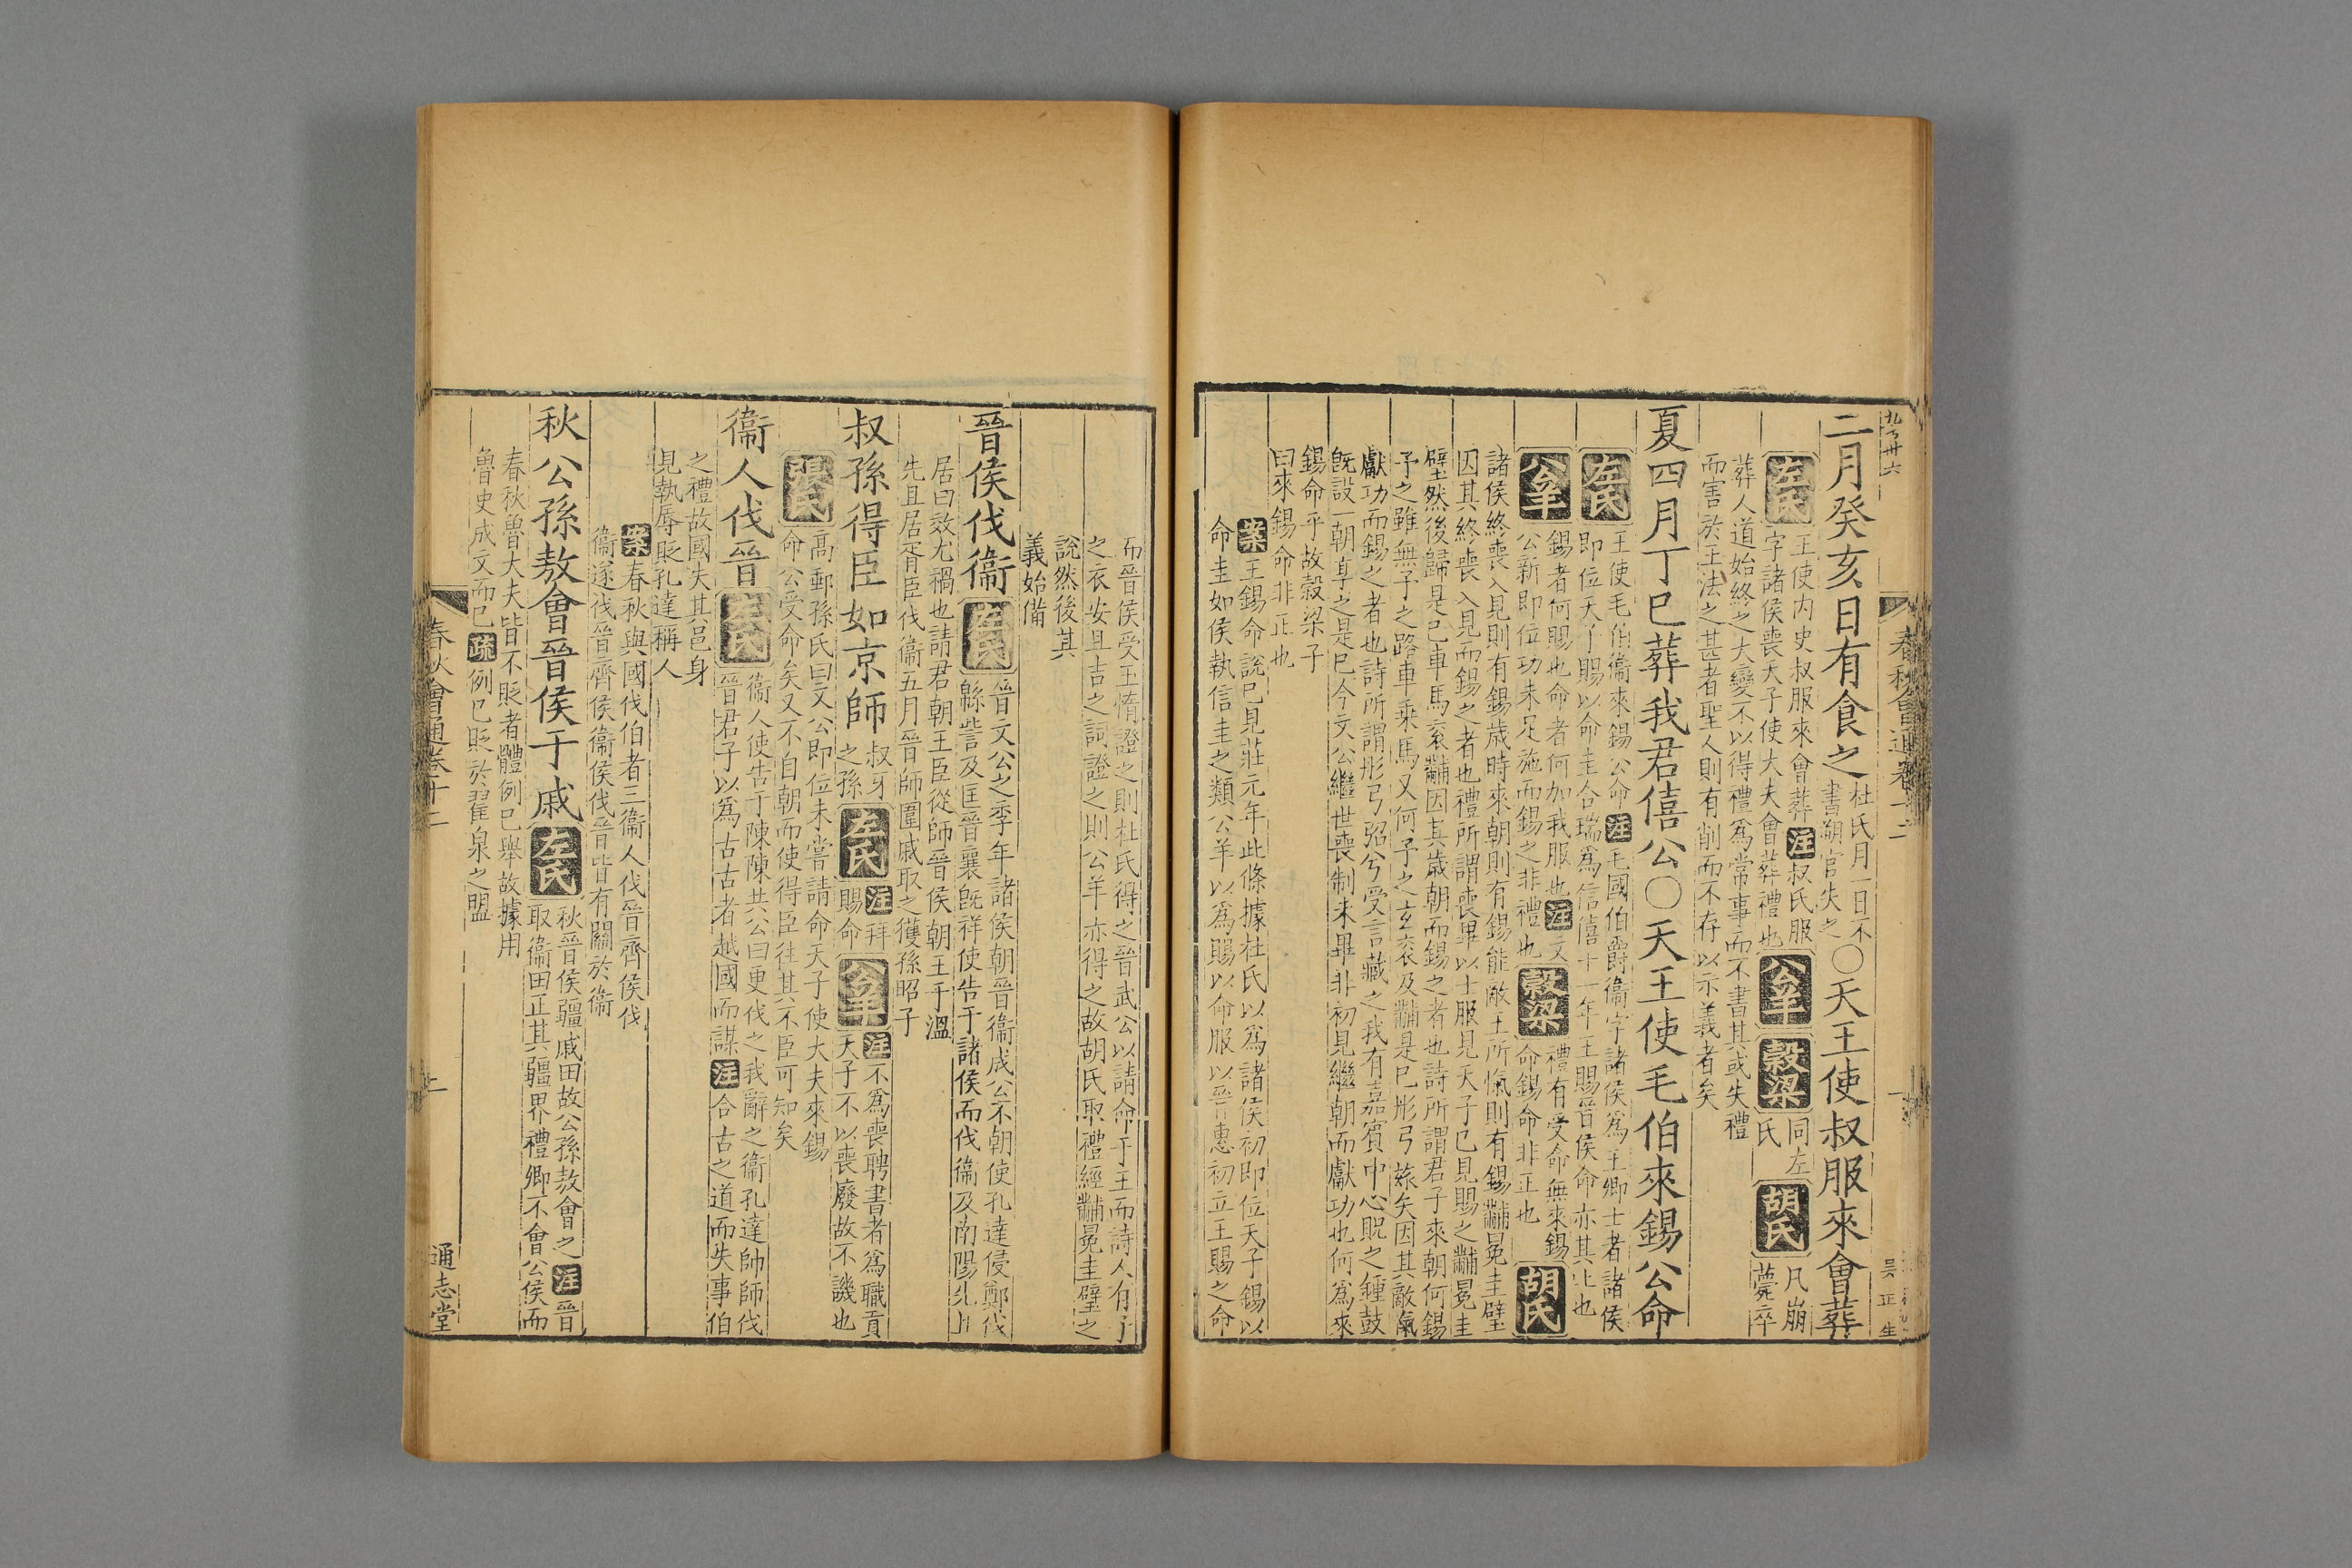 二月癸亥日有食之杜氏月一日不書朔官失之〇天王使叔服來會葬
左氏王使内史叔服來會葬注叔氏服字諸侯喪天子使大夫會葬禮也公羊穀梁同左氏胡氏凡崩薨卒
葬人道始終之大變不以得禮為常事而不書其或失禮
而害於王法之甚者聖人則有削而不存以示義者矣
夏四月丁巳葬我君僖公〇天王使毛伯來錫公命
左氏王使毛伯衞來錫公命注毛國伯爵衞字諸侯爲王卿士者諸侯即位天子賜以命圭合瑞爲信僖十一年王賜晉侯命亦其比也
公羊錫者何賜也命者何加我服也注文公新即位功未足施而錫之非禮也穀梁禮有受命無來錫命錫命非正也胡氏
諸侯終喪入見則有錫歲時來朝則有錫能敵王所愾則有錫黼冕圭璧
因其終喪入見而錫之者也禮所謂喪畢以士服見天子已見賜之黼冕圭
璧然後歸是已車馬衮黼因其歲朝而錫之者也詩所謂君子來朝何錫
予之雖無予之路車乗馬又何予之玄衮及黼是已彤弓玈矢因其敵愾
獻功而錫之者也詩所謂彤弓弨兮受言藏之我有嘉賓中心貺之鍾鼓
旣設一朝享之是已今文公繼世喪制未畢非初見繼朝而獻功也何爲來
錫命乎故穀梁子
曰來錫命非正也
案王錫命說已見莊元年此條據杜氏以爲諸侯初即位天子錫以
命圭如侯執信圭之類公羊以爲賜以命服以晉惠初立王賜之命
春秋會通卷十二
吴正生
而晉侯受玉惰證之則杜氏得之晉武公以請命于王而詩人有子
之衣安且吉之詞證之則公羊亦得之故胡氏取禮經黼冕圭璧之
說然後其
義始備
晉侯伐衞左氏晉文公之季年諸侯朝晉衞成公不朝使孔達侵鄭伐緜訾及匡晉襄旣祥使告于諸侯而伐衞及南陽先
居曰效尤禍也請君朝王臣從師晉侯朝王于溫
先且居胥臣伐衞五月晉師圍戚取之獲孫昭子
叔孫得臣如京師叔牙之孫左氏注拜賜命公羊注不爲喪聘書者爲職貢天子不以喪廢故不譏也
張氏高郵孫氏曰文公即位未嘗請命天子使大夫來錫
命公受命矣又不自朝而使得臣往其不臣可知矣
衞人伐晉左氏衞人使告于陳陳共公曰更伐之我辭之衞孔達帥師伐晉君子以爲古古者越國而謀注合古之道而失事伯
之禮故國失其邑身
見執辱貶孔達稱人
案春秋與國伐伯者三衞人伐晉齊侯伐
衞遂伐晉齊侯衞侯伐晉皆有關於衞
秋公孫敖會晉侯于戚左氏秋晉侯疆戚田故公孫敖會之注晉取衞田正其疆界禮卿不會公侯而
春秋魯大夫皆不貶者體例已舉故據用
魯史成文而已疏例已貶於翟泉之盟
春秋會通卷十二
二
通志堂